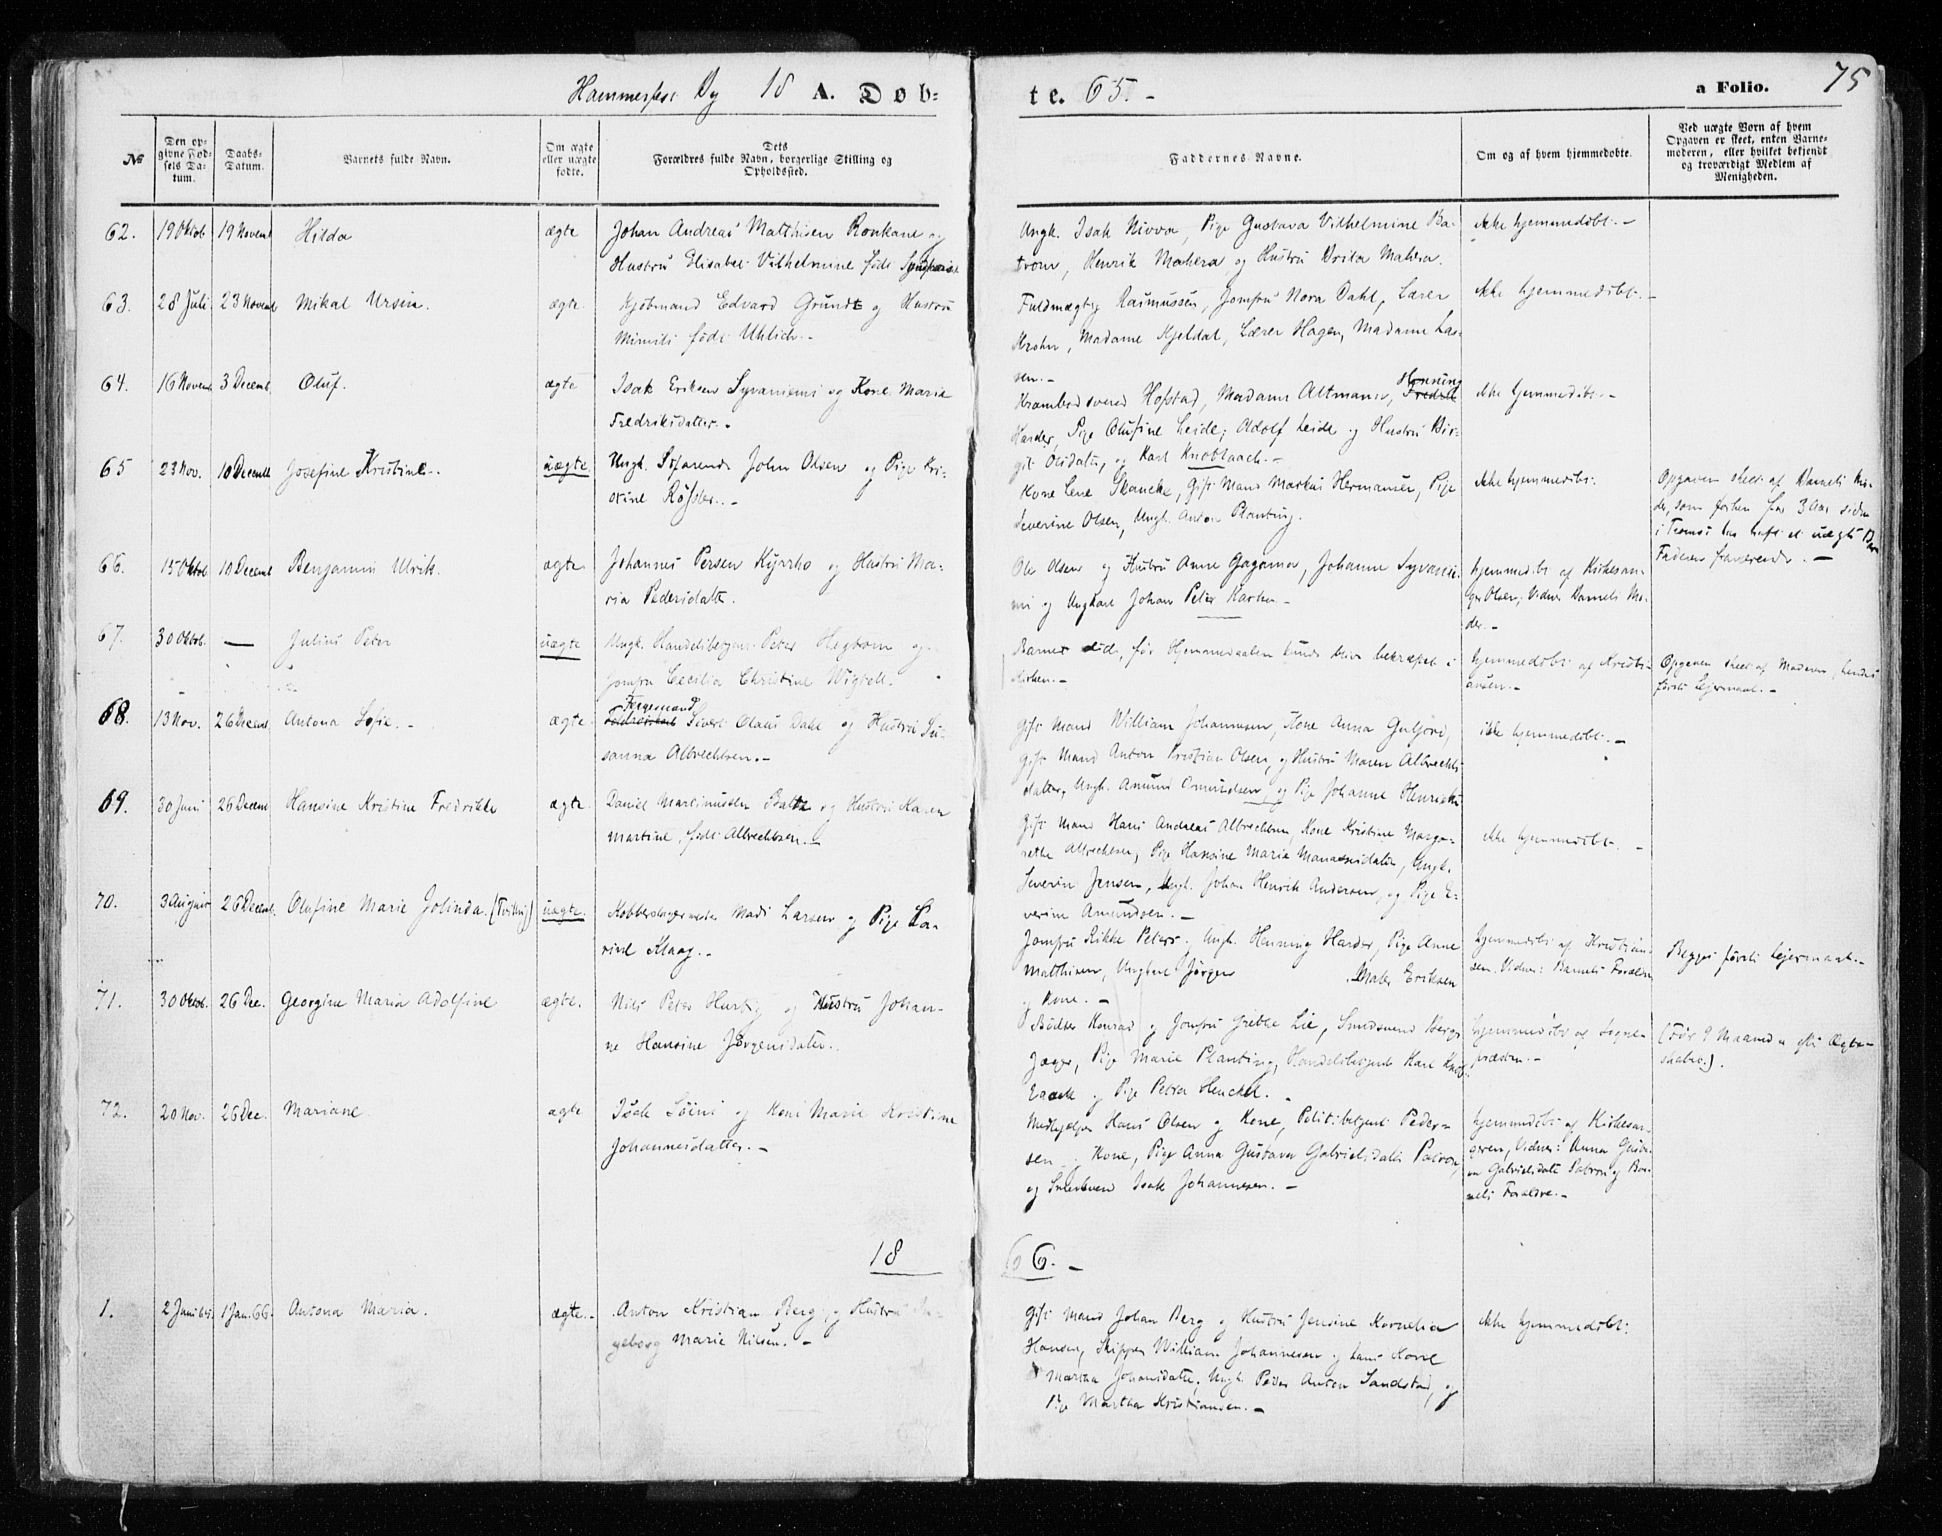 Hammerfest By 18 A. Døb-
te. 65.-
a Folio. 75
№
Den op-
givne Fød-
sels Da-
tum.
Daabs-
Datum.
Barnets fulde Navn.
Om ægte
eller uægte
fødte.
Dets
Forældres fulde Navn, borgerlige Stilling og
Opholdssted.
Faddernes Navne.
Om og af hvem hjemmedøbte.
Ved uægte Børn af hvem
Opgaven er skeet, enten Barne-
moderen, eller hvilket bekjendt
og troværdigt Medlem af
Menigheden.
62. 19 Oktob. 19 Novemb Hilda ægte Johan Andreas Matthisen Ronkane og
Hustru Elisabet Vilhelmine født
Ungk. Isak Nivva, Pige Gustava Vilhelmine Ba-
trom, Henrik Mahera og Hustru Brita Mahera.
ikke hjemmedøbt.-
63. 28 Juli 23 Novemb Mikal Ursin. ægte. Kjøbmand Edvard Grundt og Hustru
Mimili født Uhlich.-
Fuldmægtig Rasmussen, Jomfru Nora Dahl, Lærer
Krohn, Madame Kjeldal, Lærer Hagen, Madame Lar-
sen.-
ikke hjemmedøbt.-
64. 16 Novemb. 3 Decemb. Oluf. ægte Isak Eriksen Syvaniemi og Kone Maria
Fredriksdatter.-
Krambodsvend Hofstad, Madame Altmann, Henning
Harder, Pige Olufine Leide, Adolf Leide og Hustru Bir-
git Olsdatter, og Karl Knoblaach.-
ikke hjemmedøbt.-
65 23 Nov. 10 Decemb Josefine Kristine.- uægte. Ungk. Søfarende John Olsen og Pige Kri-
stine Røfsler.-
Kone Lene Skancke, Gift Mand Markus Hermansen, Pige
Severine Olsen, Ungk. Anton Planting.
ikke hjemmedøbt.
Opgaven skeet af Barnets Mo-
der, som forhen for 3 Aar siden
i Tromsø har havt et uægte Barn
Faderen fraværende.-
66. 15 Oktob 10 Decemb Benjamin Ulrik. ægte. Johannes Persen Kyrrho og Hustru Ma-
ria Pedersdatter.
Ole Olsen og Hustru Anne Gagama, Johanne Syvanie-
mi og Ungkarl Johan Peter Karlsen.-
hjemmedøbt af Kirkesan-
ger Olsen; Vidner Barnets Mo-
der.-
67. 30 Oktob. — Julius Peter uægte Ungk. Handelsbetjent Peter Hegbom og
Jomfru Cecilia Christine Wigdell.
Barnet død, før Hjemmedaaben kunde blive bekræftet i
Kirken.-
hjemmedøbt af Kristi-
ansen.-
Opgaven skeet af Moderen, hendes
første Lejermaal.-
68. 13 Nov. 26 Decemb. Antona Sofie.- ægte Færgemand Sivert Olaus Dahl og Hustru Su-
sanna Albrechtsen.-
Gift Mand William Johannesen, Kone Anna
gift Mand Anton Kristian Olsen, og Hustru Maren Albrechts
datter, Ungk. Amund Amundsen, og Pige Johanne Henriks
ikke hjemmedøbt.-
69. 30 Juni 26 Decem Hansine Kristine Fredrikke ægte. Daniel Martinussen og Hustru Karen
Martine, født Albrechtsen.-
Gift Mand Hans Andreas Albrechtsen, Kone Kristine Marga-
rethe Albrechtsen, Pige Hansine Maria Manassesdatter, Ungk.
Severin Jensen, Ungk. Johan Henrik Andersen, og Pige Se-
verine Amundsen.-
ikke hjemmedøbt.-
70. 3 August 26 Decemb. Olufine Marie Jolinda. (Tvilling) uægte. Kobberslagermester Mads Larsen og Pige Ka-
rine Klaag.-
Jomfru Rikke Peters., Ungk. Henning Harder, Pige Anne
Matthisen, Ungkarl Jørgen Mats Eriksen
og Kone.-
hjemmedøbt af Kristian-
sen. Vidner: Barnets Forældre
Begges første Lejermaal.-
71. 30 Oktob. 26 Dec. Georgine Maria Adolfine ægte. Nils Peter Hartig og Hustru Johan-
ne Hansine Jørgensdatter.
Bødker Konrad og Jomfru Grethe Lie, Smedsvend Berg
Jæger, Pige Marie Planting, Handelsbetjent Karl Knob-
laach og Pige Petra Henckel.-
hjemmedøbt af Sogne-
præsten.-
(Før 9 Maaneder efter Ægte-
skabet).
72. 20 Nov. 26 Dec. Mariane ægte Isak Søini og Kone Marie Kristine
Johannesdatter.-
Medhjelper Hans Olsen og Kone, Politibetjent Peder-
sen og Kone, Pige Anna Gustava Gabrielsdatter Patron,
og Smedsvend Isak Johannesen.-
hjemmedøbt af Kirkesan-
geren, Vidner: Anna Gusta-
va Gabrielsdatter Patron og Bar-
nets Forældre.-
18 66.-
1. 2 Juni 65. 1 Jan. 66. Antona Maria. ægte.- Anton Kristian Berg, og Hustru In-
geborg Marie Nilsen.-
Gift Mand Johan Berg og Hustru Jensine Kornelia
Hansen, Skipper William Johannesen og hans Kone
Martha Johansdatter, Ungk. Peder Anton Sandstad, og
Pige Martha Kristiansen.-
ikke hjemmedøbt.